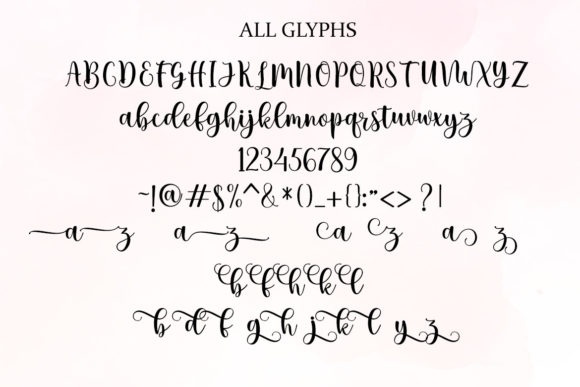 ALL GLYPHS
ABCDEFGHIJKLMNOPQRSTUVWXYZ
abcdefghijklmnopqrstuvwxyz
123456789
~!@#$%^&*()_+{}:"<>?|
a z a z a z a z
b f h k l
b d f g h j k l y z